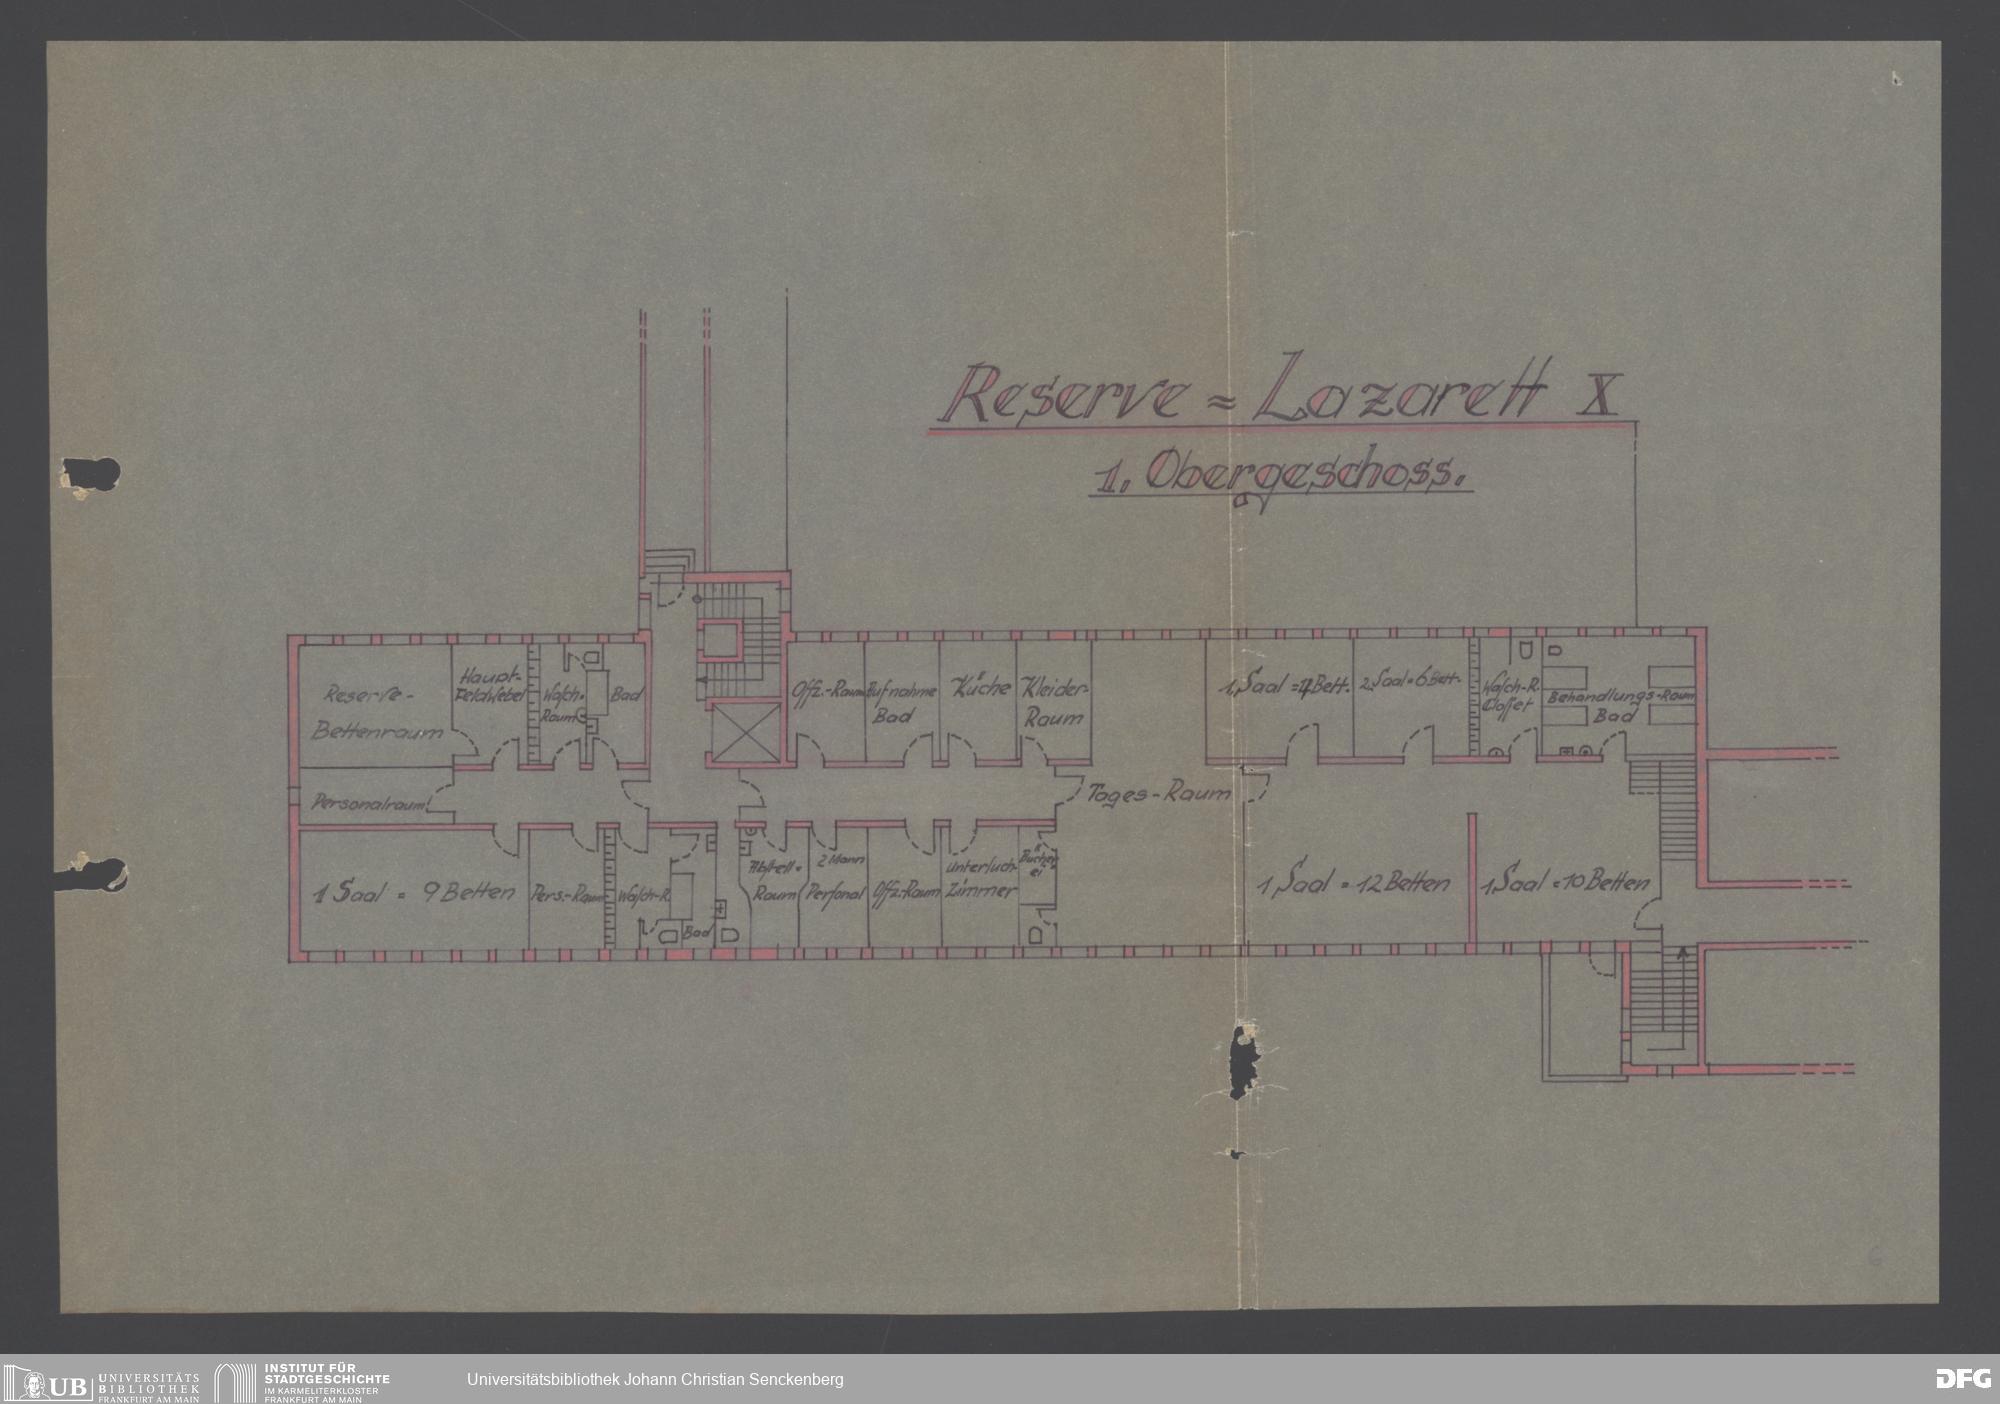 Reserve = Lazarett X
1. Obergeschoss.
Reserve-
Bettenraum
Haupt-
Feldwebel
Wasch-
Raum
Bad
Offz.-Raum
Aufnahme
Bad
Küche
Kleider-
Raum
1. Saal = 4 Bett.
2. Saal = 6 Bett.
Wasch-R.
Closset
Behandlungs-Raum
Bad
Personalraum
Tages-Raum
1 Saal = 9 Betten
Pers.-Raum
Wasch-R.
Bad
Abstell-
Raum
2 Mann
Personal
Offz.-Raum
Untersuch-
Zimmer
Bücher
ei
1 Saal = 12 Betten
1 Saal = 10 Betten
6
UB
UNIVERSITÄTS
BIBLIOTHEK
FRANKFURT AM MAIN
INSTITUT FÜR
STADTGESCHICHTE
IM KARMELITERKLOSTER
FRANKFURT AM MAIN
Universitätsbibliothek Johann Christian Senckenberg
DFG